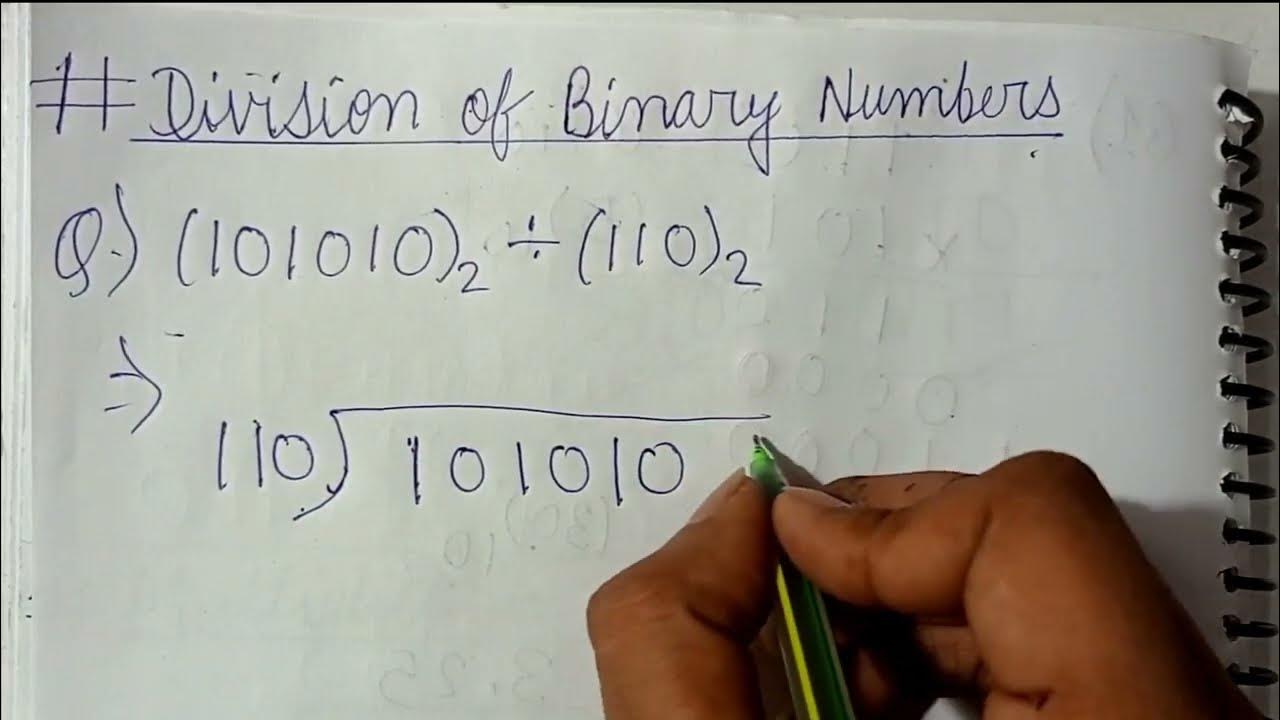 # Division of Binary Numbers
Q.) (101010)₂ ÷ (110)₂
⇒
110) 101010